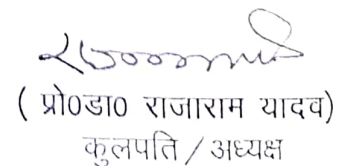 ( प्रो0डा0 राजाराम यादव)
कुलपति / अध्यक्ष